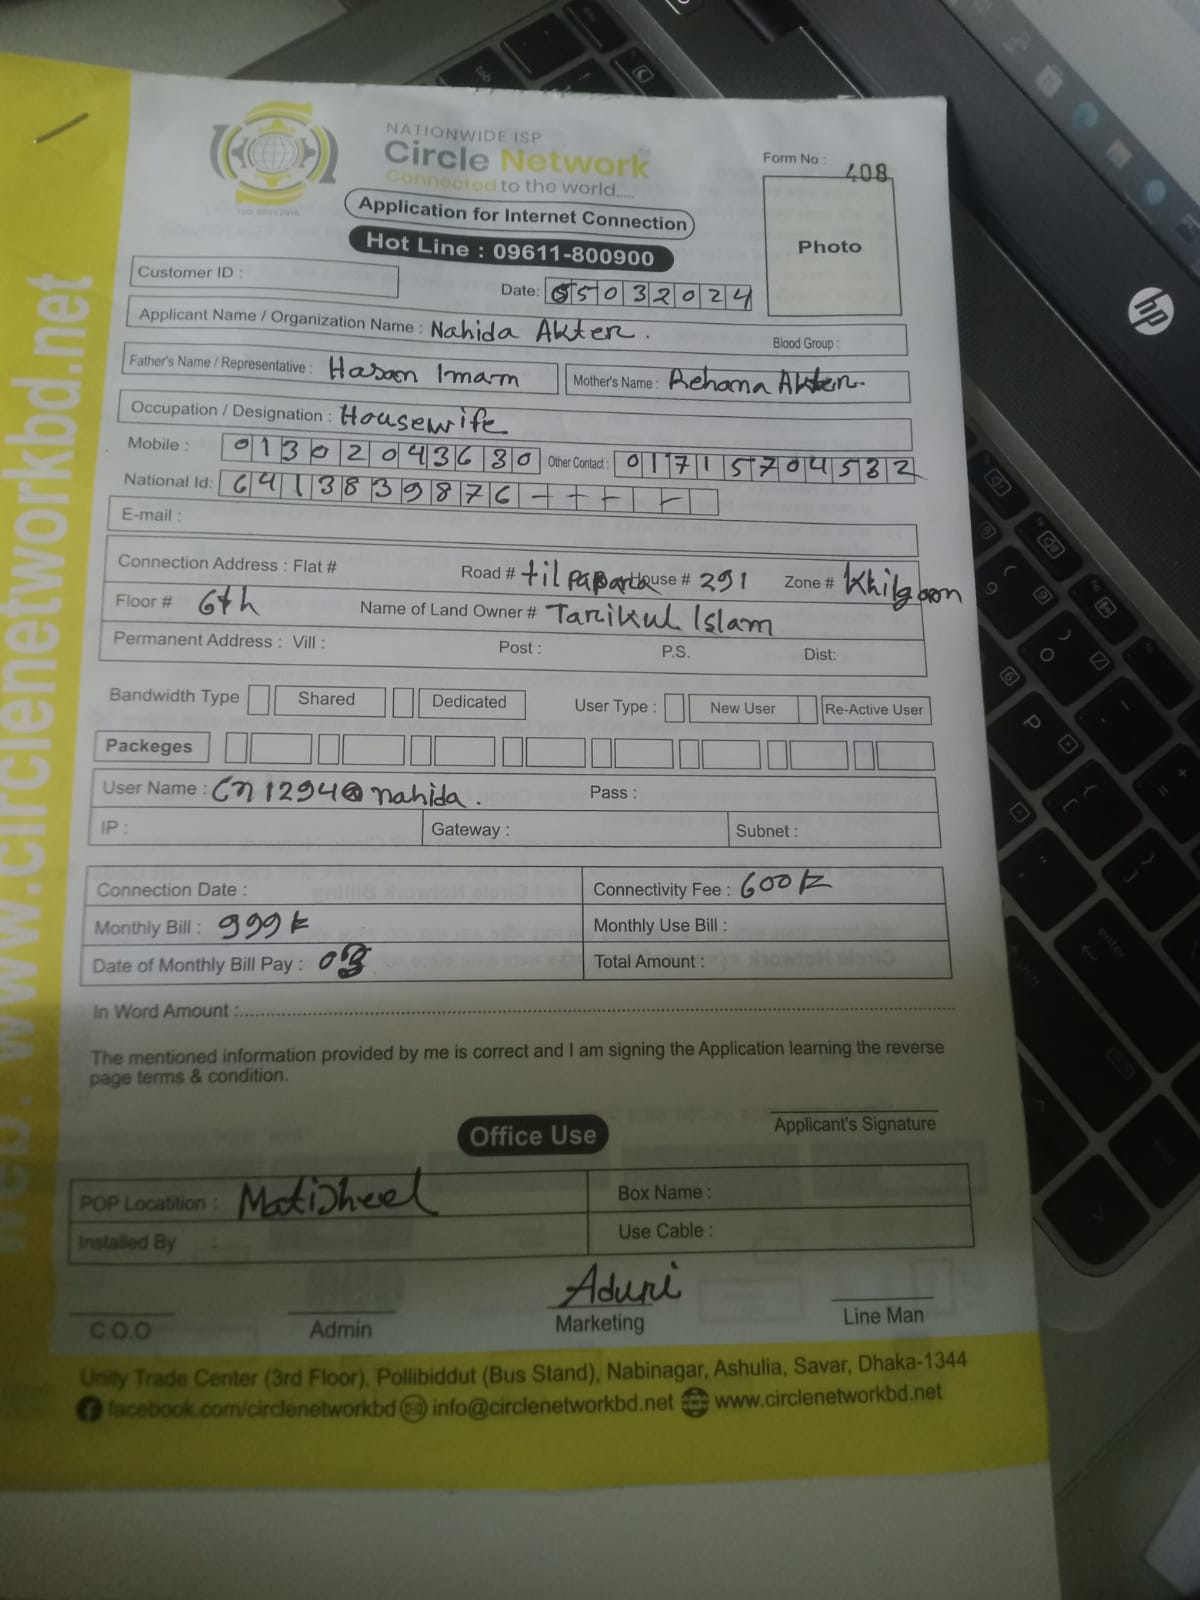 NATIONWIDE ISP
Circle Network
Connected to the world.....
ISO 9001:2015
Form No : 408
Application for Internet Connection
Hot Line : 09611-800900
Photo
Customer ID :
Date: 05032024
Applicant Name / Organization Name : Nahida Akter. Blood Group :
Father's Name / Representative : Hasan Imam Mother's Name : Rehana Akter.
Occupation / Designation : Housewife
Mobile : 01302043630 Other Contact : 01715704532
National Id: 6413839876
E-mail :
Connection Address : Flat # Road # tilpapara House # 291 Zone # Khilgaon
Floor # 6th Name of Land Owner # Tarikul Islam
Permanent Address : Vill : Post : P.S. Dist:
Bandwidth Type Shared Dedicated User Type : New User Re-Active User
Packeges
User Name : Cn1294@nahida. Pass :
IP : Gateway : Subnet :
Connection Date : Connectivity Fee : 600 tk
Monthly Bill : 999 tk Monthly Use Bill :
Date of Monthly Bill Pay : Total Amount :
In Word Amount :
The mentioned information provided by me is correct and I am signing the Application learning the reverse
page terms & condition.
Applicant's Signature
Office Use
POP Locatition : Motijheel Box Name :
Installed By : Use Cable :
Aduri
C.O.O Admin Marketing Line Man
Unity Trade Center (3rd Floor), Pollibiddut (Bus Stand), Nabinagar, Ashulia, Savar, Dhaka-1344
facebook.com/circlenetworkbd info@circlenetworkbd.net www.circlenetworkbd.net
web: www.circlenetworkbd.net
hp